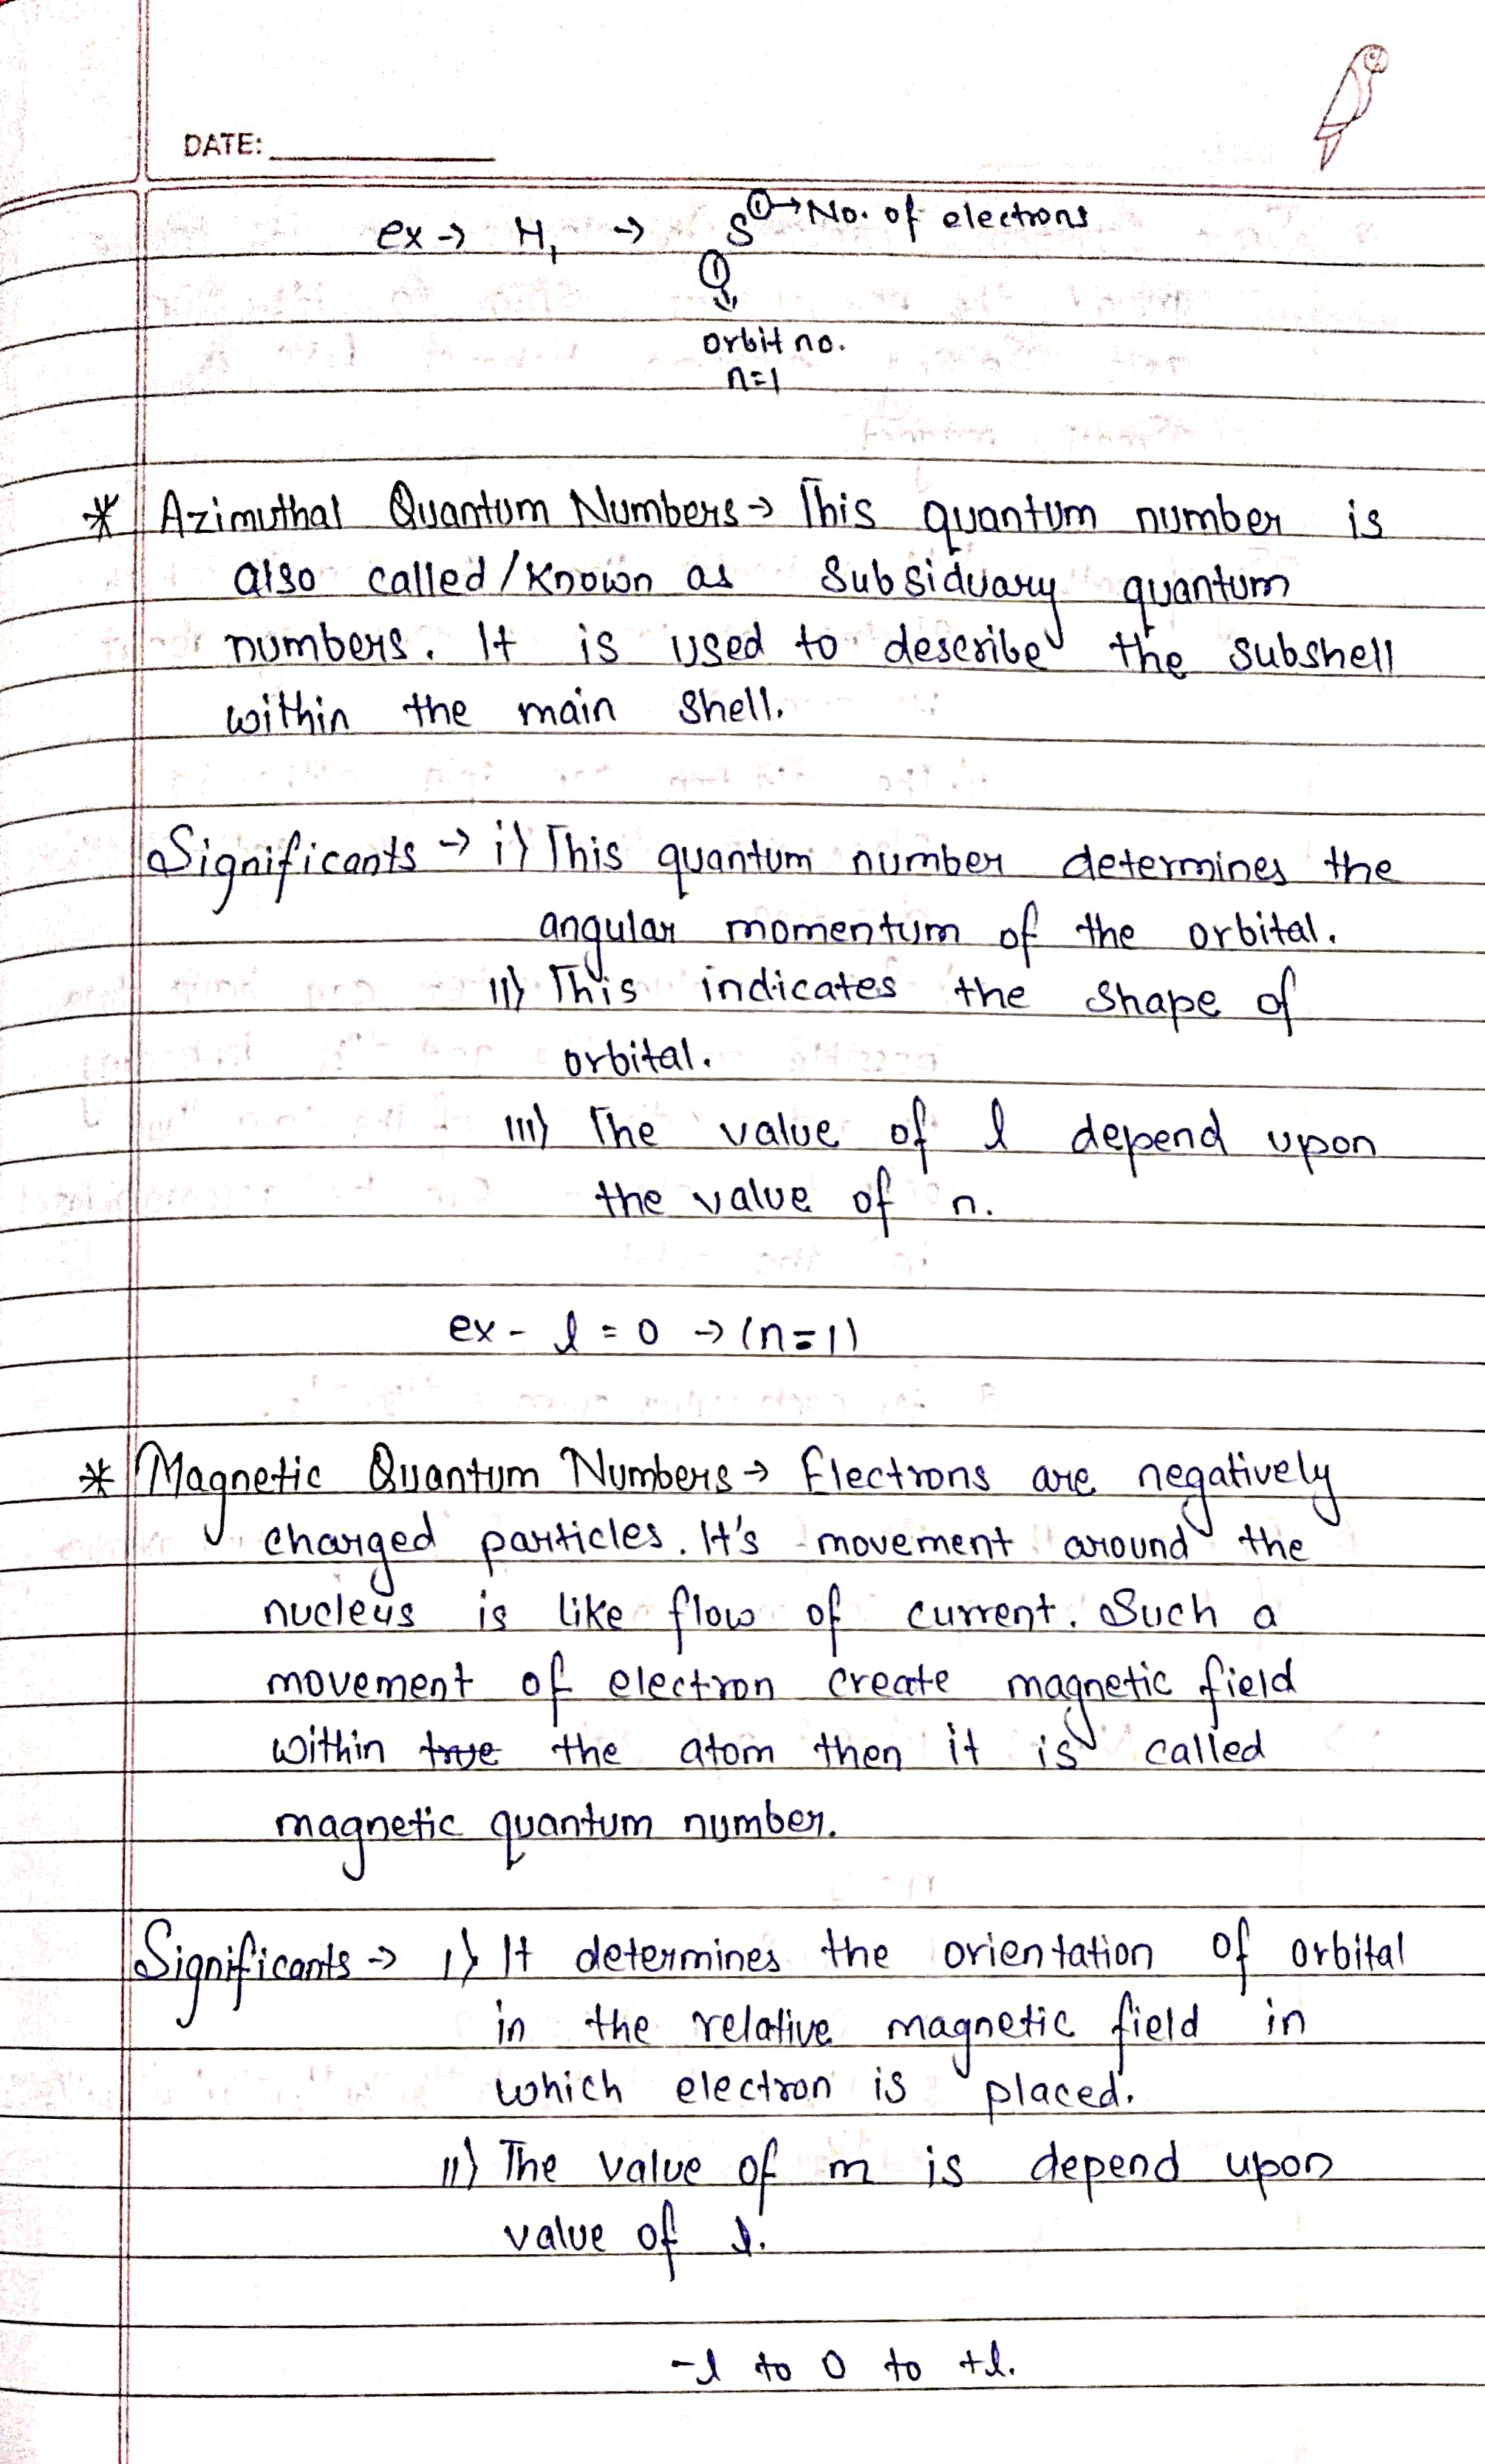 DATE:
ex → H₁ → S① → No. of electrons
①
↓
orbit no.
n=1
* Azimuthal Quantum Numbers → This quantum number is
also called/known as Subsiduary quantum
numbers. It is used to describe the subshell
within the main shell.
Significants → i) This quantum number determines the
angular momentum of the orbital.
ii) This indicates the shape of
orbital.
iii) The value of l depend upon
the value of n.
ex - l = 0 → (n=1)
* Magnetic Quantum Numbers → Electrons are negatively
charged particles. It's movement around the
nucleus is like flow of current. Such a
movement of electron create magnetic field
within true the atom then it is called
magnetic quantum number.
Significants → i) It determines the orientation of orbital
in the relative magnetic field in
which electron is placed.
ii) The value of m is depend upon
value of l.
-l to 0 to +l.